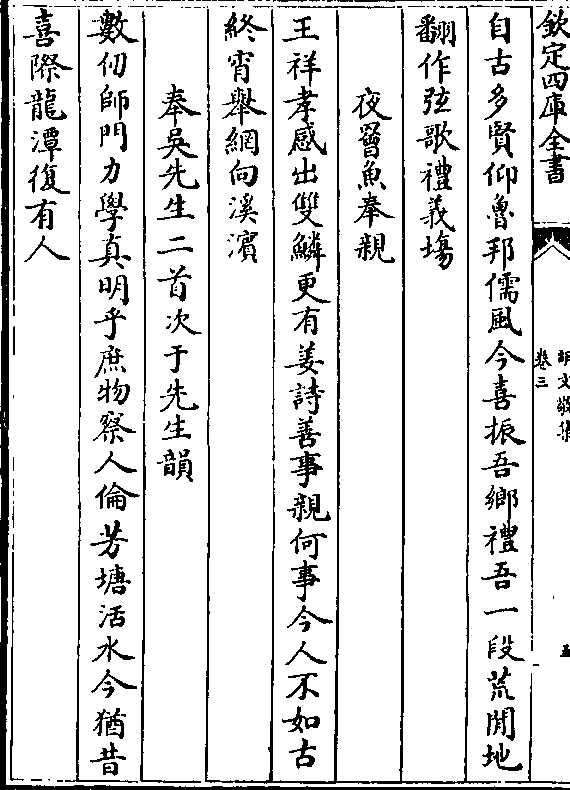 欽定四庫全書
胡文敬集
卷三
五
自古多賢仰魯邦儒風今喜振吾鄉禮吾一段荒閒地
翻作弦歌禮義場
夜罾魚奉親
王祥孝感出雙鱗更有姜詩善事親何事今人不如古
終宵舉網向溪濱
奉吳先生二首次于先生韻
數仞師門力學真明乎庶物察人倫芳塘活水今猶昔
喜際龍潭復有人